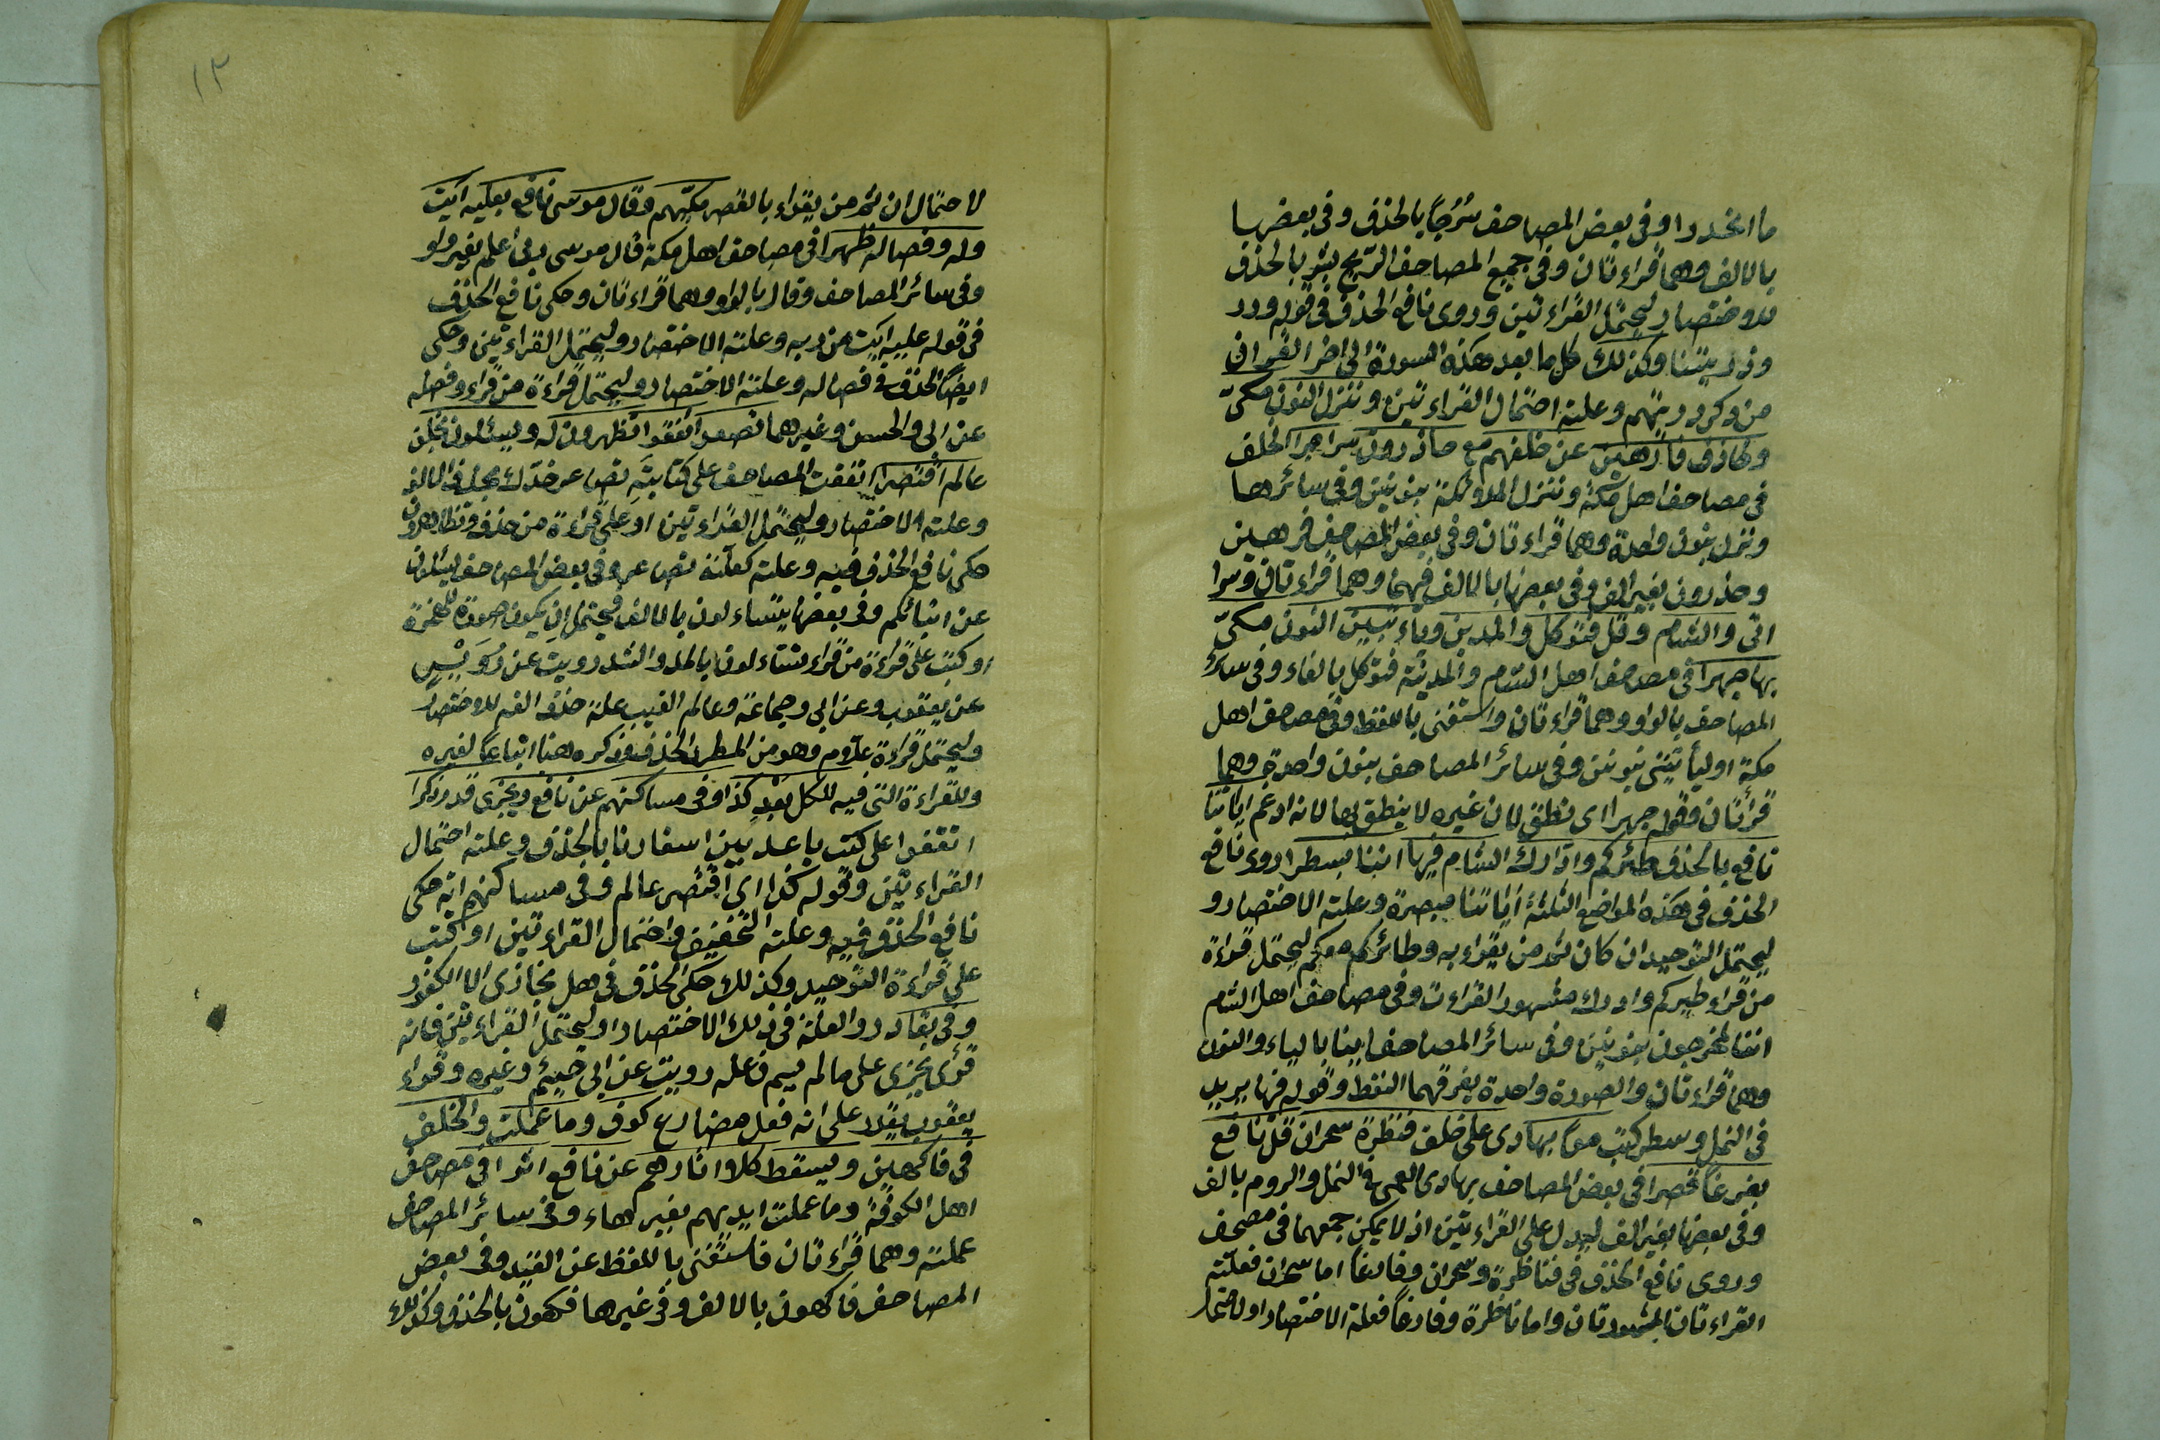 ما انحدرا وفى بعض المصاحف سُرُجاً بالحذف وفى بعضها
بالالف وهما قراءتان وفى جميع المصاحف الرّيح بشر بالحذف
للاختصار ليحتمل القراءتين وروى نافع الحذف فى قوله ودد
وذريتنا وكذلك كل ما بعد هذه السورة الى اخر القران
من ذكر ذريتهم وعلته احتمال القراءتين وننزل النون مكىّ
وحاذف فارهين عن خلفهم مع حاذرون سراجا الخلف
فى مصاحف اهل مكة وننزل الملائكة بنونين وفى سائرها
ونزل بنون واحدة وهما قراءتان وفى بعض المصاحف فرهين
وحذرون بغير الف وفى بعضها بالالف فيهما وهما قراءتان وسرا
اتى والشام وقل فتوكل والمدين وياءتينن النون مكىّ
بها جهرا فى مصحف اهل الشام والمدينة فتوكل بالفاء وفى سائر
المصاحف بالواو وهما قراءتان واستغنى باللفظ وفى مصحف اهل
مكة اوليأتيننى بنونين وفى سائر المصاحف بنون واحدة وهما
قراءتان وقوله جهرا اى نطق لان غيره لا ينطق بها لانه ادغم اياتنا
نافع بالحذف طئركم وادارك الشام فيها اننا بسطرا روى نافع
الحذف فى هذه المواضع الثلثة اياتنا مبصرة وعلته الاختصار و
ليحتمل التوحيد ان كان ثم من يقراء به وطائركم معكم ليحتمل قراءة
من قراء طيركم وادرك مشهور القراءت وفى مصاحف اهل الشام
اننا لمخرجون بنونين وفى سائر المصاحف اينا بالياء والنون
وهما قراءتان والصورة واحدة يفرقهما النقط وقوله فيها يريد
فى النمل وسطر كتب معا بهادى على خلف فنظرة سحران قل نافع
بفرغاً قصرا فى بعض المصاحف بهادى العمى فى النمل والروم بالف
وفى بعضها بغير الف ليدل على القراءتين اذ لا يمكن جمعهما فى مصحف
وروى نافع الحذف فى فناظرة وسحران وفارغا اما سحران فعلته
القراءتان المشهورتان واما ناظرة وفارغاً فعلة الاختصار او لاحتما
١٣
لاحتمال ان ثم من يقراء بالقصر مكيّهم وقال موسى نافع بعليه ايت
وله وفصاله ظهرا فى مصاحف اهل مكة قال موسى ربى اعلم بغير واو
وفى سائر المصاحف وقال بالواو وهما قراءتان وحكى نافع الحذف
فى قوله عليه ايت من ربه وعلته الاختصار وليحتمل القراءتين وحكى
ايضا الحذف فى فصاله وعلته الاختصار وليحتمل قراءة من قراء وفصله
عن ابى والحسن وغيرهما تصعر اتفقوا تظهرون له ويسئلون بخلف
عالم اقتصرا اتفقت المصاحف على كتابته تصعر خدك بحذف الالف
وعلته الاختصار وليحتمل القراءتين او على قراءة من حذف وتظاهرون
حكى نافع الحذف فيه وعلته كعلّة تصعر وفى بعض المصاحف يسئلون
عن انبائكم وفى بعضها يتساءلون بالالف فيحتمل ان يكون صورة للهمزة
او كتب على قراءة من قراء يتساءلون بالمد والشد رويت عن رُوَيْسٍ
عن يعقوب وعن ابى وجماعة وعالم الغيب علة حذف الفه للاختصار
وليحتمل قراءة علّام وهو من المطرد الحذف وذكره هنا اتباعا لغيره
وللقراءة التى فيه للكل بعد كذا وفى مساكنهم عن نافع ويجزى قدر ذكرا
اتفقوا على كتب باعد بين اسفارنا بالحذف وعلته احتمال
القراءتين وقوله كذا اى اقتصر عالم وفى مساكنهم انه حكى
نافع الحذف فيه وعلته التخفيف واحتمال القراءتين او كتب
على قراءة التوحيد وكذلك حكى الحذف فى وهل نجازى الا الكفور
وفى بقادر والعلة فى ذلك الاختصار او ليحتمل القراءتين فانه
قرئ يجزى على مالم يسم فاعله رويت عن ابى خيثم وغيره وقراء
يعقوب يقدر على انه فعل مضارع كوف وما عملت والخلف
فى فاكهين ويسقط كلا واثارهم عن نافع اثرا فى مصحف
اهل الكوفة وما عملت ايديهم بغير هاء وفى سائر المصاحف
عملته وهما قراءتان فاستغنى باللفظ عن القيد وفى بعض
المصاحف فاكهون بالالف وفى غيرها فكهون بالحذف وكذلك